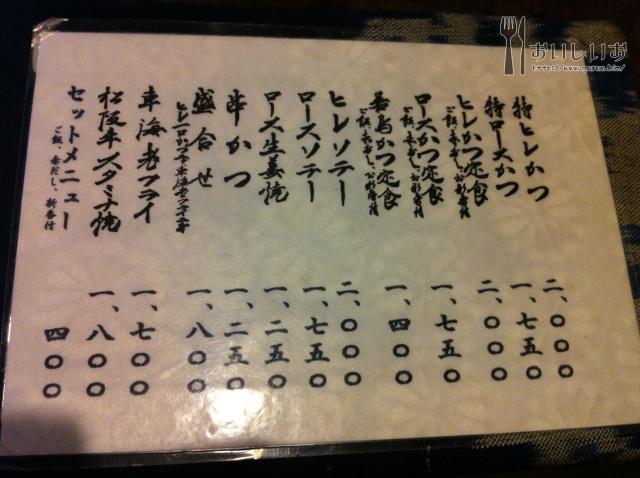 特ヒレかつ 二、〇〇〇
特ロースかつ 一、七五〇
ヒレかつ定食 二、〇〇〇
ご飯、赤だし、お新香付
ロースかつ定食 一、七五〇
ご飯、赤だし、お新香付
かつ定食 一、四〇〇
ご飯、赤だし、お新香付
ヒレソテー 二、〇〇〇
ロースソテー 一、七五〇
ロース生姜焼 一、二五〇
串かつ 一、二五〇
盛合せ 一、八〇〇
車海老フライ 一、七〇〇
松阪牛スタミナ焼 一、八〇〇
セットメニュー 四〇〇
ご飯、赤だし、新香付
おいしいお